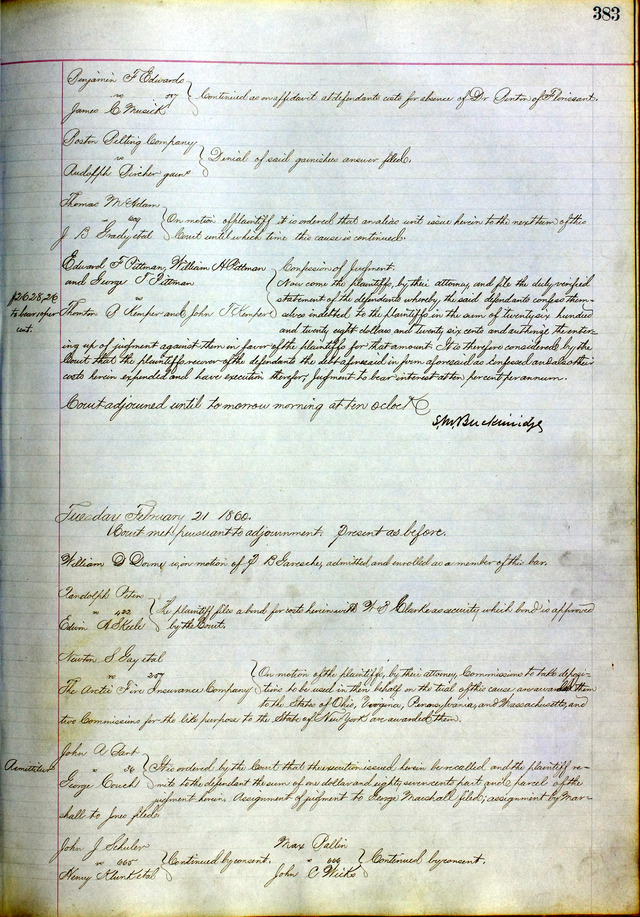 383
Benjamin F Edwards
vs 257
James C Musick
Continued as on affidavit at defendants costs for absence of Dr Penton of Florissant.
Boston Belting Company
vs
Rudolph Bircher garn
Denial of said garnishees answer filed.
Thomas McAdam
J B Grady et al
On motion of plaintiff it is ordered that an alias writ issue herein to the next term of this
Court until which time this cause is continued.
Edward F Pittman, William H Pittman
and George T Pittman
vs
Thornton P Kemper and John T Kemper
$2628,26
to bear 10 per
cent.
Confession of Judgment.
Now come the plaintiffs, by their attorney, and file the duly verified
statement of the defendants whereby, the said defendants confess them-
selves indebted to the plaintiffs in the sum of twenty six hundred
and twenty eight dollars and twenty six cents and authorize the enter-
ing up of judgment against them in favor of the plaintiffs for that amount. It is therefore considered by the
Court that the plaintiffs recover of the defendants the debt aforesaid in form aforesaid as confessed and also their
costs herein expended and have execution therefor, judgment to bear interest at ten per cent per annum.
Court adjourned until to morrow morning at ten oclock
Tuesday February 21 1860.
Court met pursuant to adjournment. Present as before.
William D is, on motion of B Garesche, admitted and enrolled as a member of this bar.
Randolph
vs 422
Edwin A Skeele
The plaintiff files a bond for costs herein with Clarke as security, which bond is approved
by the Court.
Newton S Gay et al
vs 257
The Arctic Fire Insurance Company
On motion of the plaintiffs, by their attorney, Commissions to take deposi-
tions to be used in their behalf on the trial of this cause, are awarded them
to the State of Ohio, Virginia, Pennsylvania, and Massachusetts, and
two Commissions for the like purpose to the State of New York are awarded them.
Remittitur
John A
vs
George Couch
It is ordered by the Court that the execution issued herein be recalled and the plaintiff re-
mits to the defendant the sum of one dollar and eighty seven cents part and parcel of the
judgment herein. Assignment of judgment to George Marshall filed; assignment by Mar-
shall to filed.
John J Schuler
vs 665
Henry et al
Continued by consent.
Max Pallin
vs
John C Wicks
Continued by consent.